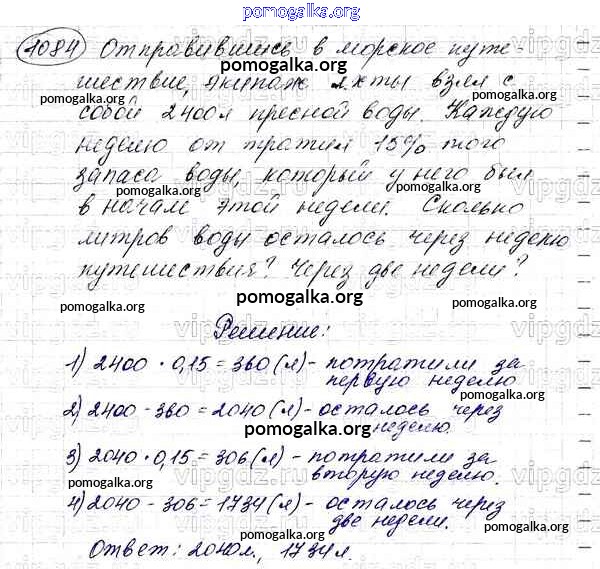 pomogalka.org
1084 Отправившись в морское путе-
pomogalka.org
шествие, экипаж яхты взял с
pomogalka.org
собой 2400л пресной воды. Каждую
pomogalka.org
неделю он тратил 15% того
pomogalka.org
запаса воды, который у него был
pomogalka.org
в начале этой недели. Сколько
pomogalka.org
литров воды осталось через неделю
pomogalka.org
путешествия? Через две недели?
pomogalka.org
pomogalka.org
pomogalka.org
Решение:
pomogalka.org
1) 2400 · 0,15 = 360 (л) - потратили за
первую неделю
pomogalka.org
2) 2400 - 360 = 2040 (л) - осталось через
pomogalka.org
неделю.
3) 2040 · 0,15 = 306 (л) - потратили за
pomogalka.org
вторую неделю.
pomogalka.org
4) 2040 - 306 = 1734 (л) - осталось через
pomogalka.org
две недели.
pomogalka.org
Ответ: 2040л., 1734л.
pomogalka.org